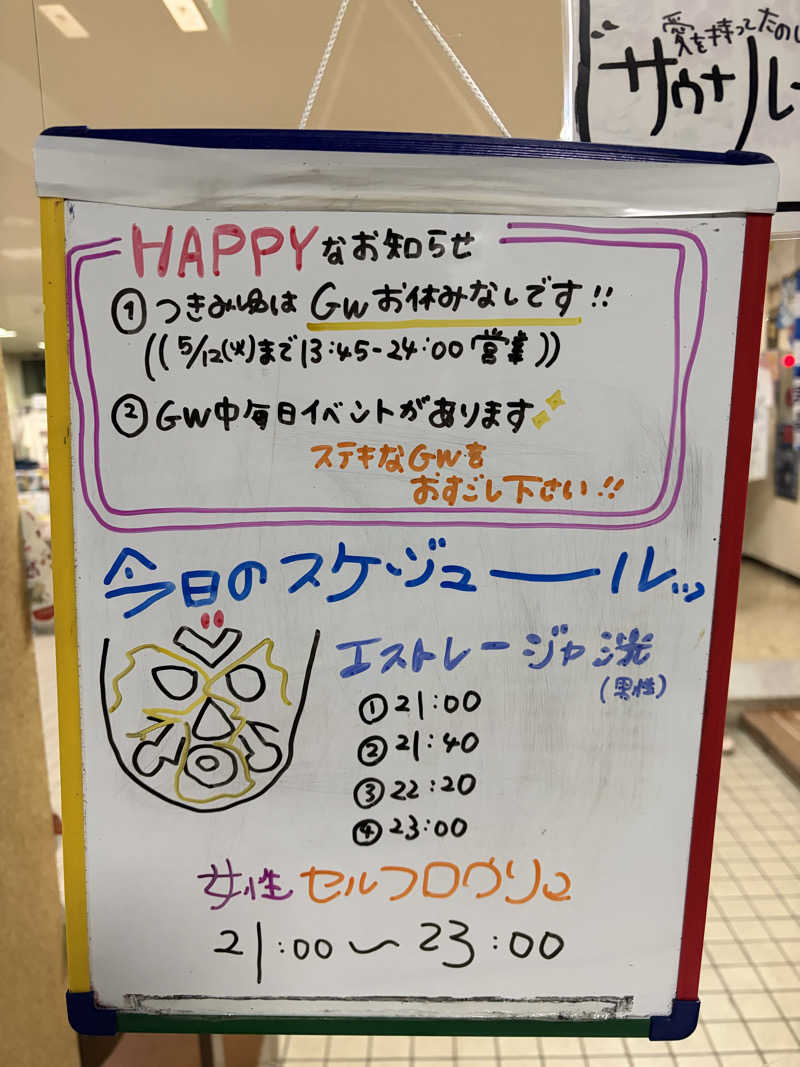 愛を持ってたのし
サウナル
HAPPYなお知らせ
① つきみ湯は GWお休みなしです!!
((5/12(火)まで13:45-24:00 営業))
② GW中毎日イベントがあります
ステキなGWを
おすごし下さい!!
今日のスケジュールッ
エストレージャ洸
(男性)
① 21:00
② 21:40
③ 22:20
④ 23:00
女性 セルフロウリュ
21:00〜23:00